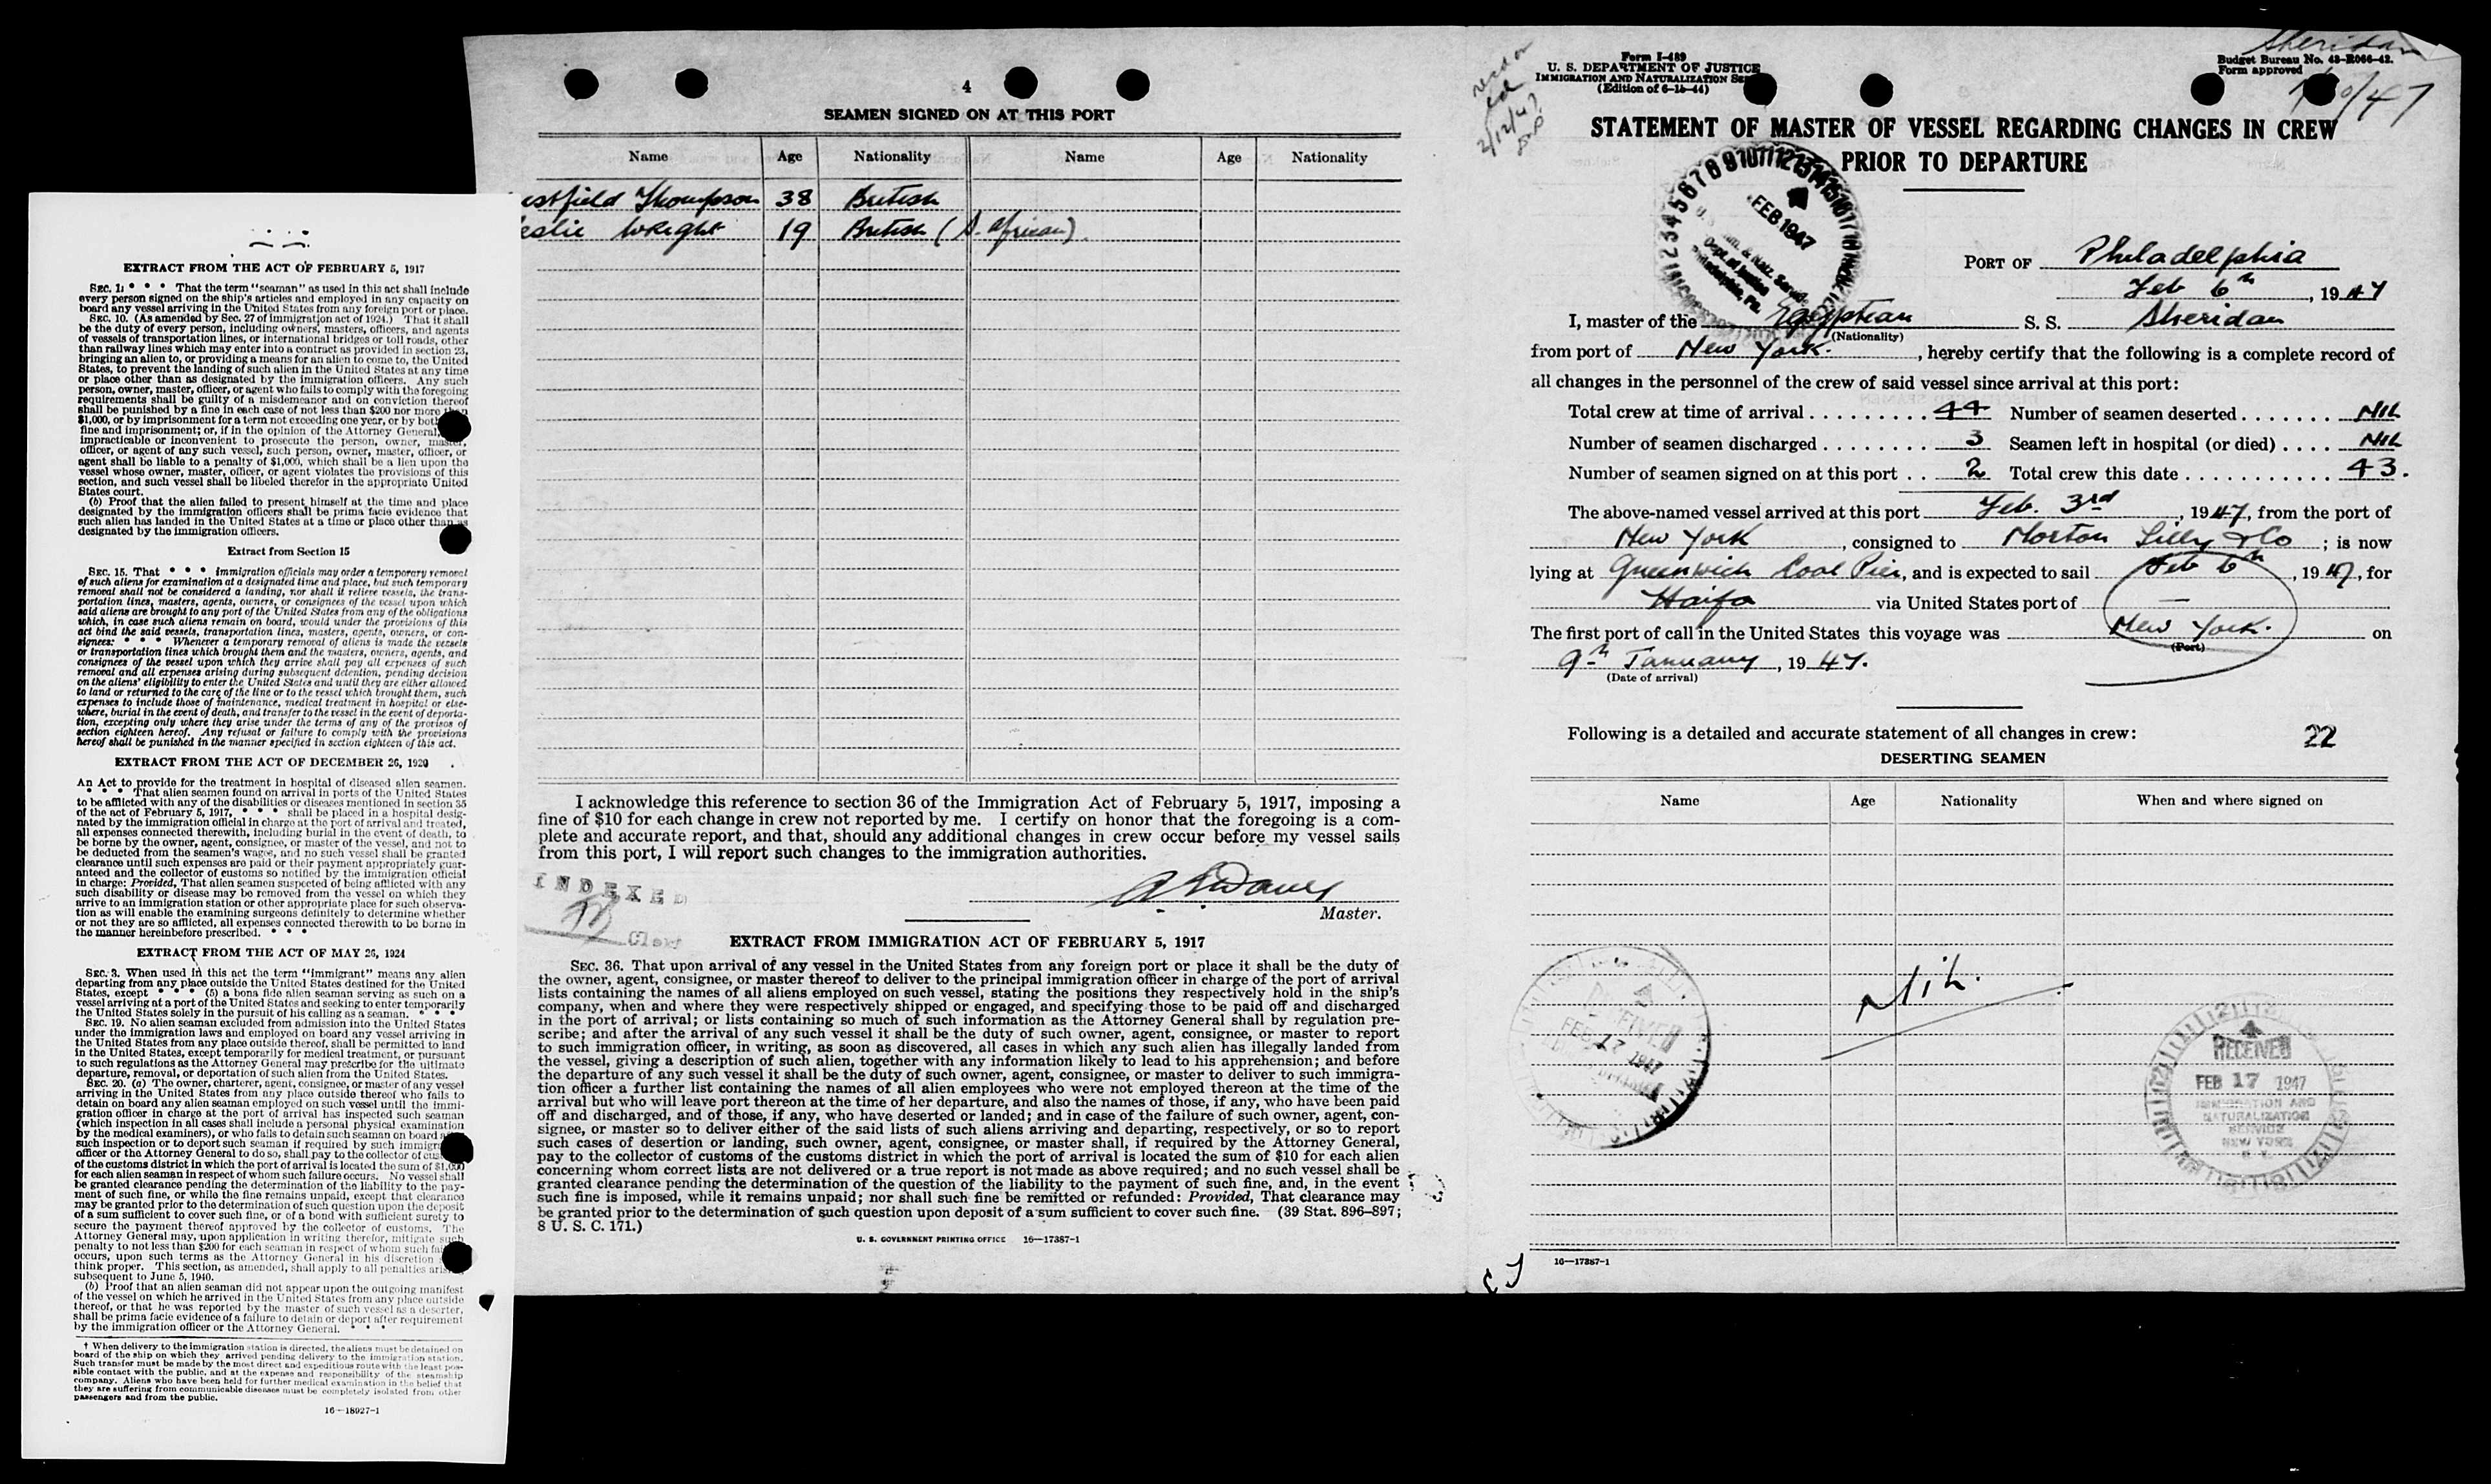 EXTRACT FROM THE ACT OF FEBRUARY 5, 1917
SEC. 1. * * * That the term "seaman" as used in this act shall include
every person signed on the ship's articles and employed in any capacity on
board any vessel arriving in the United States from any foreign port or place.
SEC. 10. (As amended by Sec. 27 of immigration act of 1924.) That it shall
be the duty of every person, including owners, masters, officers, and agents
of vessels of transportation lines, or international bridges or toll roads, other
than railway lines which may enter into a contract as provided in section 23,
bringing an alien to, or providing a means for an alien to come to, the United
States, to prevent the landing of such alien in the United States at any time
or place other than as designated by the immigration officers. Any such
person, owner, master, officer, or agent who fails to comply with the foregoing
requirements shall be guilty of a misdemeanor and on conviction thereof
shall be punished by a fine in each case of not less than $200 nor more than
$1,000, or by imprisonment for a term not exceeding one year, or by both
fine and imprisonment; or, if in the opinion of the Attorney General,
impracticable or inconvenient to prosecute the person, owner, master,
officer, or agent of any such vessel, such person, owner, master, officer, or
agent shall be liable to a penalty of $1,000, which shall be a lien upon the
vessel whose owner, master, officer, or agent violates the provisions of this
section, and such vessel shall be libeled therefor in the appropriate United
States court.
(b) Proof that the alien failed to present himself at the time and place
designated by the immigration officers shall be prima facie evidence that
such alien has landed in the United States at a time or place other than as
designated by the immigration officers.
Extract from Section 15
SEC. 15. That * * * immigration officials may order a temporary removal
of such aliens for examination at a designated time and place, but such temporary
removal shall not be considered a landing, nor shall it relieve vessels, the trans-
portation lines, masters, agents, owners, or consignees of the vessel upon which
said aliens are brought to any port of the United States from any of the obligations
which, in case such aliens remain on board, would under the provisions of this
act bind the said vessels, transportation lines, masters, agents, owners, or con-
signees: * * * Whenever a temporary removal of aliens is made the vessels
or transportation lines which brought them and the masters, owners, agents, and
consignees of the vessel upon which they arrive shall pay all expenses of such
removal and all expenses arising during subsequent detention, pending decision
on the aliens' eligibility to enter the United States and until they are either allowed
to land or returned to the care of the line or to the vessel which brought them, such
expenses to include those of maintenance, medical treatment in hospital or else-
where, burial in the event of death, and transfer to the vessel in the event of deporta-
tion, excepting only where they arise under the terms of any of the provisos of
section eighteen hereof. Any refusal or failure to comply with the provisions
hereof shall be punished in the manner specified in section eighteen of this act.
EXTRACT FROM THE ACT OF DECEMBER 26, 1920
An Act to provide for the treatment in hospital of diseased alien seamen.
* * * That alien seamen found on arrival in ports of the United States
to be afflicted with any of the disabilities or diseases mentioned in section 35
of the act of February 5, 1917, * * * shall be placed in a hospital desig-
nated by the immigration official in charge at the port of arrival and treated,
all expenses connected therewith, including burial in the event of death, to
be borne by the owner, agent, consignee, or master of the vessel, and not to
be deducted from the seamen's wages, and no such vessel shall be granted
clearance until such expenses are paid or their payment appropriately guar-
anteed and the collector of customs so notified by the immigration official
in charge: Provided, That alien seamen suspected of being afflicted with any
such disability or disease may be removed from the vessel on which they
arrive to an immigration station or other appropriate place for such observa-
tion as will enable the examining surgeons definitely to determine whether
or not they are so afflicted, all expenses connected therewith to be borne in
the manner hereinbefore prescribed. * * *
EXTRACT FROM THE ACT OF MAY 26, 1924
SEC. 3. When used in this act the term "immigrant" means any alien
departing from any place outside the United States destined for the United
States, except * * * (5) a bona fide alien seaman serving as such on a
vessel arriving at a port of the United States and seeking to enter temporarily
the United States solely in the pursuit of his calling as a seaman. * * *
SEC. 19. No alien seaman excluded from admission into the United States
under the immigration laws and employed on board any vessel arriving in
the United States from any place outside thereof, shall be permitted to land
in the United States, except temporarily for medical treatment, or pursuant
to such regulations as the Attorney General may prescribe for the ultimate
departure, removal, or deportation of such alien from the United States.
SEC. 20. (a) The owner, charterer, agent, consignee, or master of any vessel
arriving in the United States from any place outside thereof who fails to
detain on board any alien seaman employed on such vessel until the immi-
gration officer in charge at the port of arrival has inspected such seaman
(which inspection in all cases shall include a personal physical examination
by the medical examiners), or who fails to detain such seaman on board
such inspection or to deport such seaman if required by such
officer or the Attorney General to do so, shall pay to the collector of
of the customs district in which the port of arrival is located the sum of $1,000
for each alien seaman in respect of whom such failure occurs. No vessel shall
be granted clearance pending the determination of the liability to the pay-
ment of such fine, or while the fine remains unpaid, except that clearance
may be granted prior to the determination of such question upon the deposit
of a sum sufficient to cover such fine, or of a bond with sufficient surety to
secure the payment thereof approved by the collector of customs. The
Attorney General may, upon application in writing therefor, mitigate such
penalty to not less than $200 for each seaman in respect of whom such
occurs, upon such terms as the Attorney General in his discretion
think proper. This section, as amended, shall apply to all penalties
subsequent to June 5, 1940.
(b) Proof that an alien seaman did not appear upon the outgoing manifest
of the vessel on which he arrived in the United States from any place outside
thereof, or that he was reported by the master of such vessel as a deserter,
shall be prima facie evidence of a failure to detain or deport after requirement
by the immigration officer or the Attorney General. * * *
† When delivery to the immigration station is directed, the aliens must be detained on
board of the ship on which they arrived pending delivery to the immigration station.
Such transfer must be made by the most direct and expeditious route with the least pos-
sible contact with the public, and at the expense and responsibility of the steamship
company. Aliens who have been held for further medical examination in the belief that
they are suffering from communicable diseases must be completely isolated from other
passengers and from the public.
16—18927-1
4
SEAMEN SIGNED ON AT THIS PORT
Name Age Nationality Name Age Nationality
estfield Thompson 38 British
eslie Wright 19 British (S. African)
I acknowledge this reference to section 36 of the Immigration Act of February 5, 1917, imposing a
fine of $10 for each change in crew not reported by me. I certify on honor that the foregoing is a com-
plete and accurate report, and that, should any additional changes in crew occur before my vessel sails
from this port, I will report such changes to the immigration authorities.
INDEXED
Master.
EXTRACT FROM IMMIGRATION ACT OF FEBRUARY 5, 1917
SEC. 36. That upon arrival of any vessel in the United States from any foreign port or place it shall be the duty of
the owner, agent, consignee, or master thereof to deliver to the principal immigration officer in charge of the port of arrival
lists containing the names of all aliens employed on such vessel, stating the positions they respectively hold in the ship's
company, when and where they were respectively shipped or engaged, and specifying those to be paid off and discharged
in the port of arrival; or lists containing so much of such information as the Attorney General shall by regulation pre-
scribe; and after the arrival of any such vessel it shall be the duty of such owner, agent, consignee, or master to report
to such immigration officer, in writing, as soon as discovered, all cases in which any such alien has illegally landed from
the vessel, giving a description of such alien, together with any information likely to lead to his apprehension; and before
the departure of any such vessel it shall be the duty of such owner, agent, consignee, or master to deliver to such immigra-
tion officer a further list containing the names of all alien employees who were not employed thereon at the time of the
arrival but who will leave port thereon at the time of her departure, and also the names of those, if any, who have been paid
off and discharged, and of those, if any, who have deserted or landed; and in case of the failure of such owner, agent, con-
signee, or master so to deliver either of the said lists of such aliens arriving and departing, respectively, or so to report
such cases of desertion or landing, such owner, agent, consignee, or master shall, if required by the Attorney General,
pay to the collector of customs of the customs district in which the port of arrival is located the sum of $10 for each alien
concerning whom correct lists are not delivered or a true report is not made as above required; and no such vessel shall be
granted clearance pending the determination of the question of the liability to the payment of such fine, and, in the event
such fine is imposed, while it remains unpaid; nor shall such fine be remitted or refunded: Provided, That clearance may
be granted prior to the determination of such question upon deposit of a sum sufficient to cover such fine. (39 Stat. 896-897;
8 U. S. C. 171.)
U. S. GOVERNMENT PRINTING OFFICE 16—17387-1
Form I-489
U. S. DEPARTMENT OF JUSTICE
IMMIGRATION AND NATURALIZATION
(Edition of 6-15-44)
Sheridan
Budget Bureau No. 43-R066-42.
Form approved
2/12/47
STATEMENT OF MASTER OF VESSEL REGARDING CHANGES IN CREW
PRIOR TO DEPARTURE
FEB 1947
PORT OF Philadelphia
Feb 6th, 1947
I, master of the Egyptian S. S. Sheridan
(Nationality)
from port of New York., hereby certify that the following is a complete record of
all changes in the personnel of the crew of said vessel since arrival at this port:
Total crew at time of arrival 44 Number of seamen deserted NIL
Number of seamen discharged 3 Seamen left in hospital (or died) NIL
Number of seamen signed on at this port 2 Total crew this date 43.
The above-named vessel arrived at this port Feb. 3rd, 1947, from the port of
New York, consigned to Norton Lilly & Co; is now
lying at Greenwich Coal Pier, and is expected to sail Feb 6th, 1947, for
Haifa via United States port of —
The first port of call in the United States this voyage was New York. on
(Port)
9th January, 1947.
(Date of arrival)
Following is a detailed and accurate statement of all changes in crew:
22
DESERTING SEAMEN
Name Age Nationality When and where signed on
Nil.
FEB 17 1947
RECEIVED
FEB 17 1947
IMMIGRATION AND
NATURALIZATION
SERVICE
NEW YORK
16—17387-1